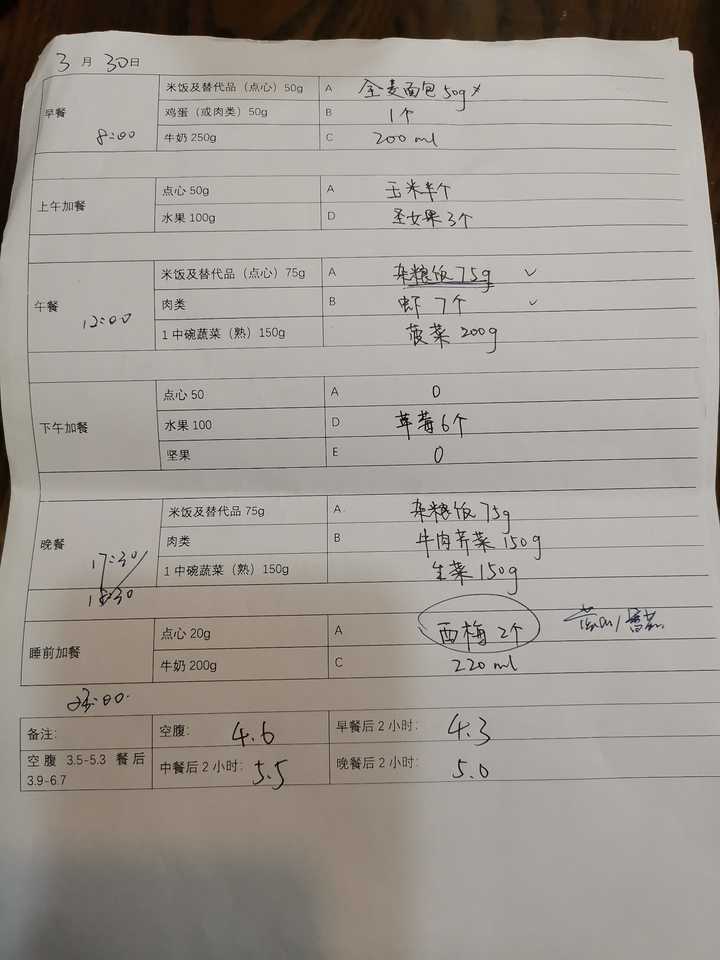 3月30日
早餐 8:00
米饭及替代品（点心）50g A 全麦面包50g
鸡蛋（或肉类）50g B 1个
牛奶 250g C 200ml
上午加餐
点心 50g A 玉米半个
水果 100g D 圣女果3个
午餐 12:00
米饭及替代品（点心）75g A 杂粮饭75g ✓
肉类 B 虾7个 ✓
1 中碗蔬菜（熟）150g 菠菜200g
下午加餐
点心 50 A 0
水果 100 D 草莓6个
坚果 E 0
晚餐 17:30/
18:30
米饭及替代品 75g A 杂粮饭75g
肉类 B 牛肉荠菜150g
1 中碗蔬菜（熟）150g 生菜150g
睡前加餐
点心 20g A 西梅2个
牛奶 200g C 220ml
备注: 空腹: 4.6 早餐后 2 小时: 4.3
空腹 3.5-5.3 餐后 3.9-6.7 中餐后 2 小时: 5.5 晚餐后 2 小时: 5.0